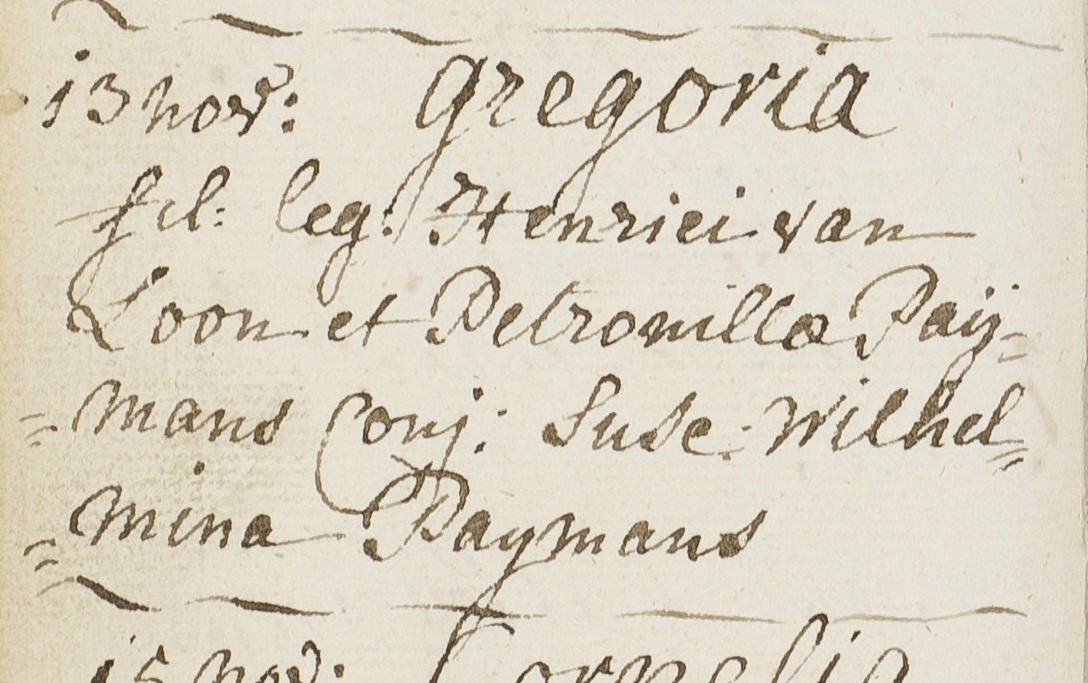 13 nov: Gregoria
fil: leg: Henrici van
Loon et Petronillæ Paij-
=mans Conj: Susc: Wilhel=
=mina Paymans
15 nov: Cornelia